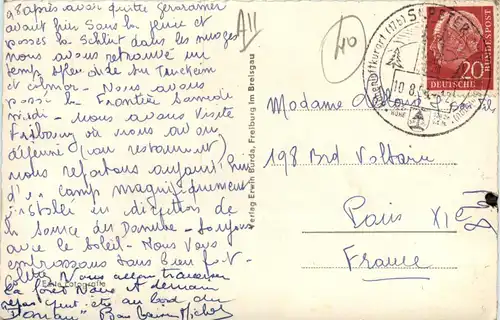 98 après avoir quitté Gérardmer
avant hier sous la pluie et
passés la Schlut dans les nuages
nous avons retrouvé un
temps splendide sur
et Colmar - Nous avons
passé la Frontière Samedi
midi - nous avons visité
Fribourg où nous avons
déjeuné (au restaurant)
nous repartons aujourd'hui
d' camp magnifiquement
installé en direction de
la source du Danube - toujours
avec le soleil - Nous Vous
embrassons bien fort
Nous allons traverser
la forêt Noire et demain
repas peut être au bord du
Bons baisers Michel
Echte Fotografie
Verlag Erwin Burda, Freiburg im Breisgau
AII
40
ST. PETER
10.8.
DEUTSCHE BUNDESPOST
20
Madame
198 Brd Voltaire
Paris XIe
France